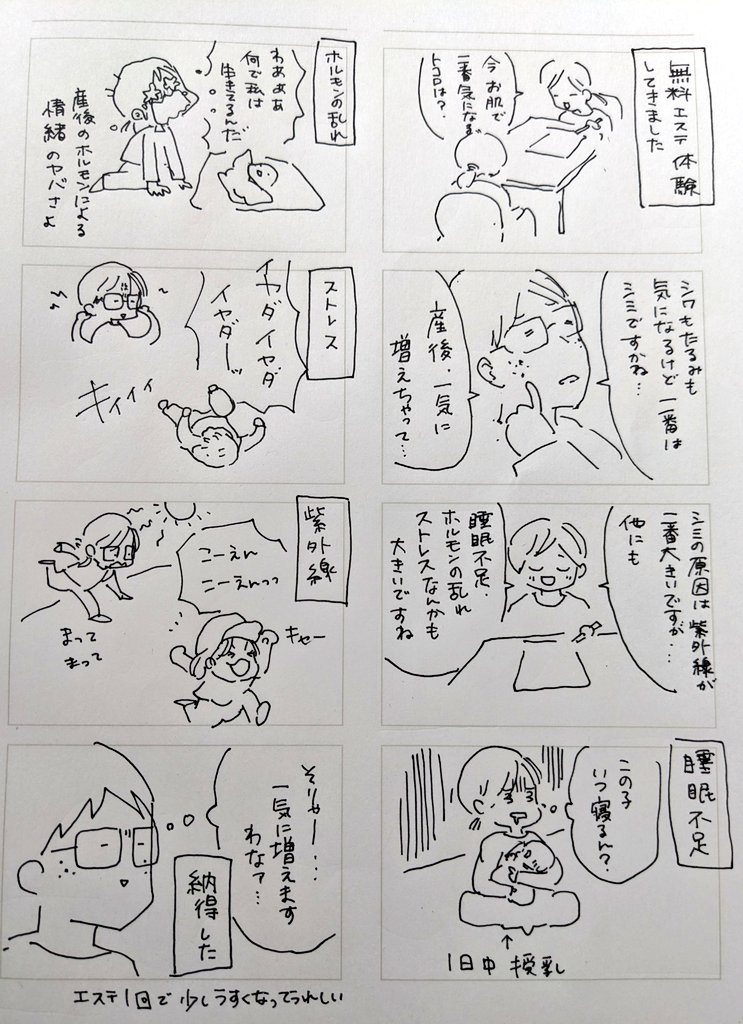 無料エステ体験
してきました
今 お肌で
一番気になる
トコロは?
シワもたるみも
気になるけど 一番は
シミですかね…
産後、一気に
増えちゃって…
シミの原因は 紫外線が
一番大きいですが…
他にも
睡眠不足、
ホルモンの乱れ
ストレスなんかも
大きいですね
睡眠不足
この子
いつ寝るん?
↑
1日中 授乳
ホルモンの乱れ
わあああ
何で私は
生きてるんだ
産後のホルモンによる
情緒のヤバさよ
ストレス
イヤダイヤダ
イヤダーッ
キイイイ
紫外線
こーえん
こーえんっっ
キャー
まって
まって
そりゃー…
一気に増えます
わなァ…
納得した
エステ1回で 少しうすくなってうれしい